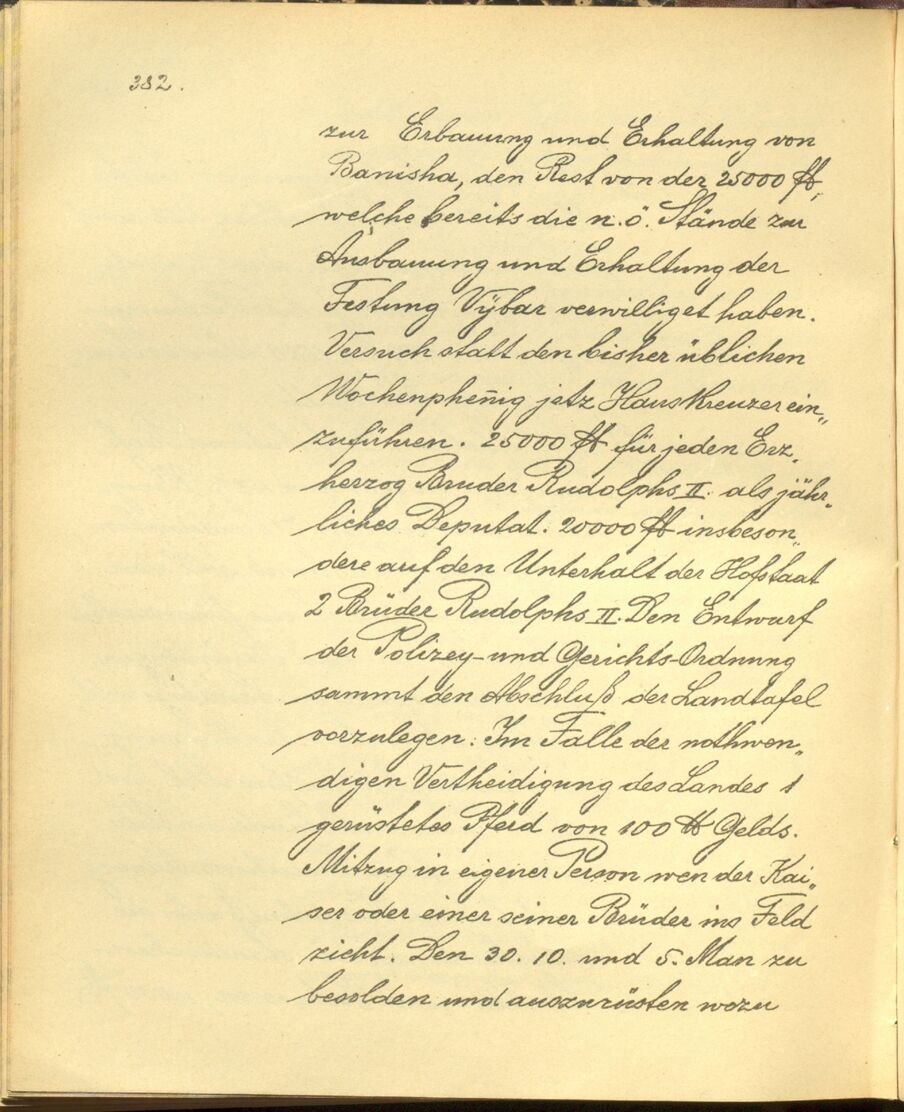 382.
zur Erbauung und Erhaltung von
Banisha, den Rest von der 25000 fl,
welche bereits die n.ö. Stände zur
Ausbauung und Erhaltung der
Festung Vÿbar verwilliget haben.
Versuch statt den bisher üblichen
Wochenphen̄ig jetz Hauskreuzer ein„
zuführen. 25000 fl für jeden Erz„
herzog Bruder Rudolphs II. als jähr„
liches Deputat. 20000 fl insbeson„
dere auf den Unterhalt der Hofstaat
2 Brüder Rudolphs II. Den Entwurf
der Polizey- und Gerichts-Ordnung
sammt den Abschluß der Landtafel
vorzulegen. Im Falle der nothwen„
digen Vertheidigung des Landes 1
gerüstetes Pferd von 100 ℔ Gelds.
Mitzug in eigener Person wen der Kai„
ser oder einer seiner Brüder ins Feld
zieht. Den 30. 10. und 5. Man zu
besolden und auszurüsten wozu